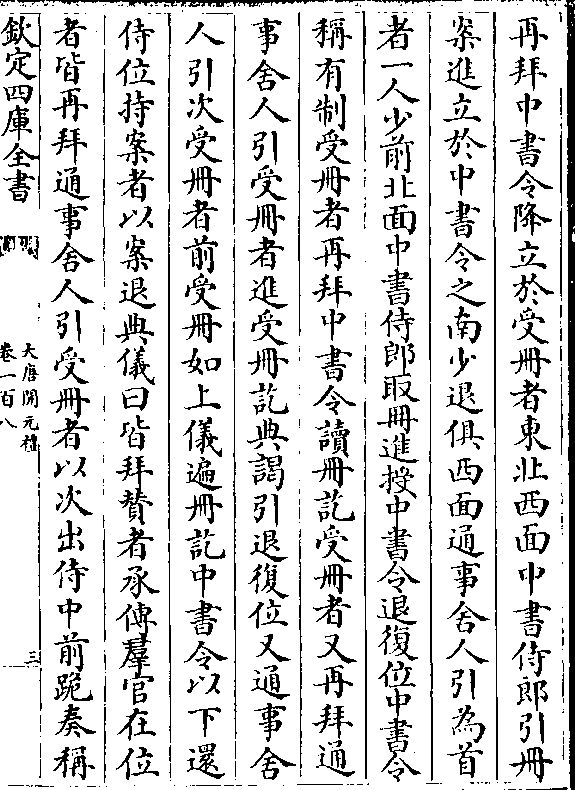 再拜中書令降立於受冊者東北西面中書侍郎引冊
案進立於中書令之南少退俱西面通事舍人引為首
者一人少前北面中書侍郎取冊進授中書令退復位中書令
稱有制受冊者再拜中書令讀冊訖受冊者又再拜通
事舍人引受冊者進受冊訖典謁引退復位又通事舍
人引次受冊者前受冊如上儀遍冊訖中書令以下還
侍位持案者以案退典儀曰皆拜贊者承傳羣官在位
者皆再拜通事舍人引受冊者以次出侍中前跪奏稱
欽定四庫全書
大唐開元禮
卷一百八
三